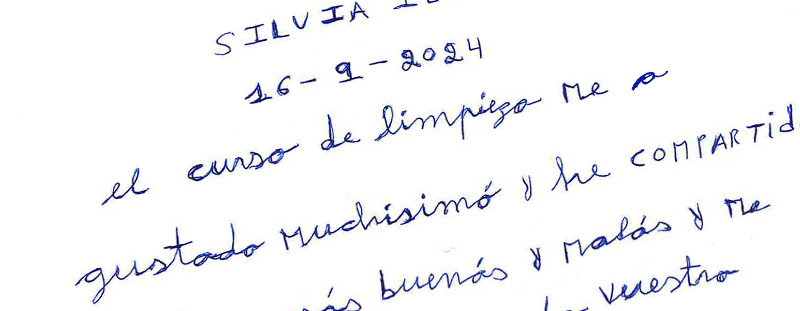 SILVIA
16-9-2024
el curso de limpieza me a
gustado muchisimó y he COMPARTID
buenás y malás y me
vuestra